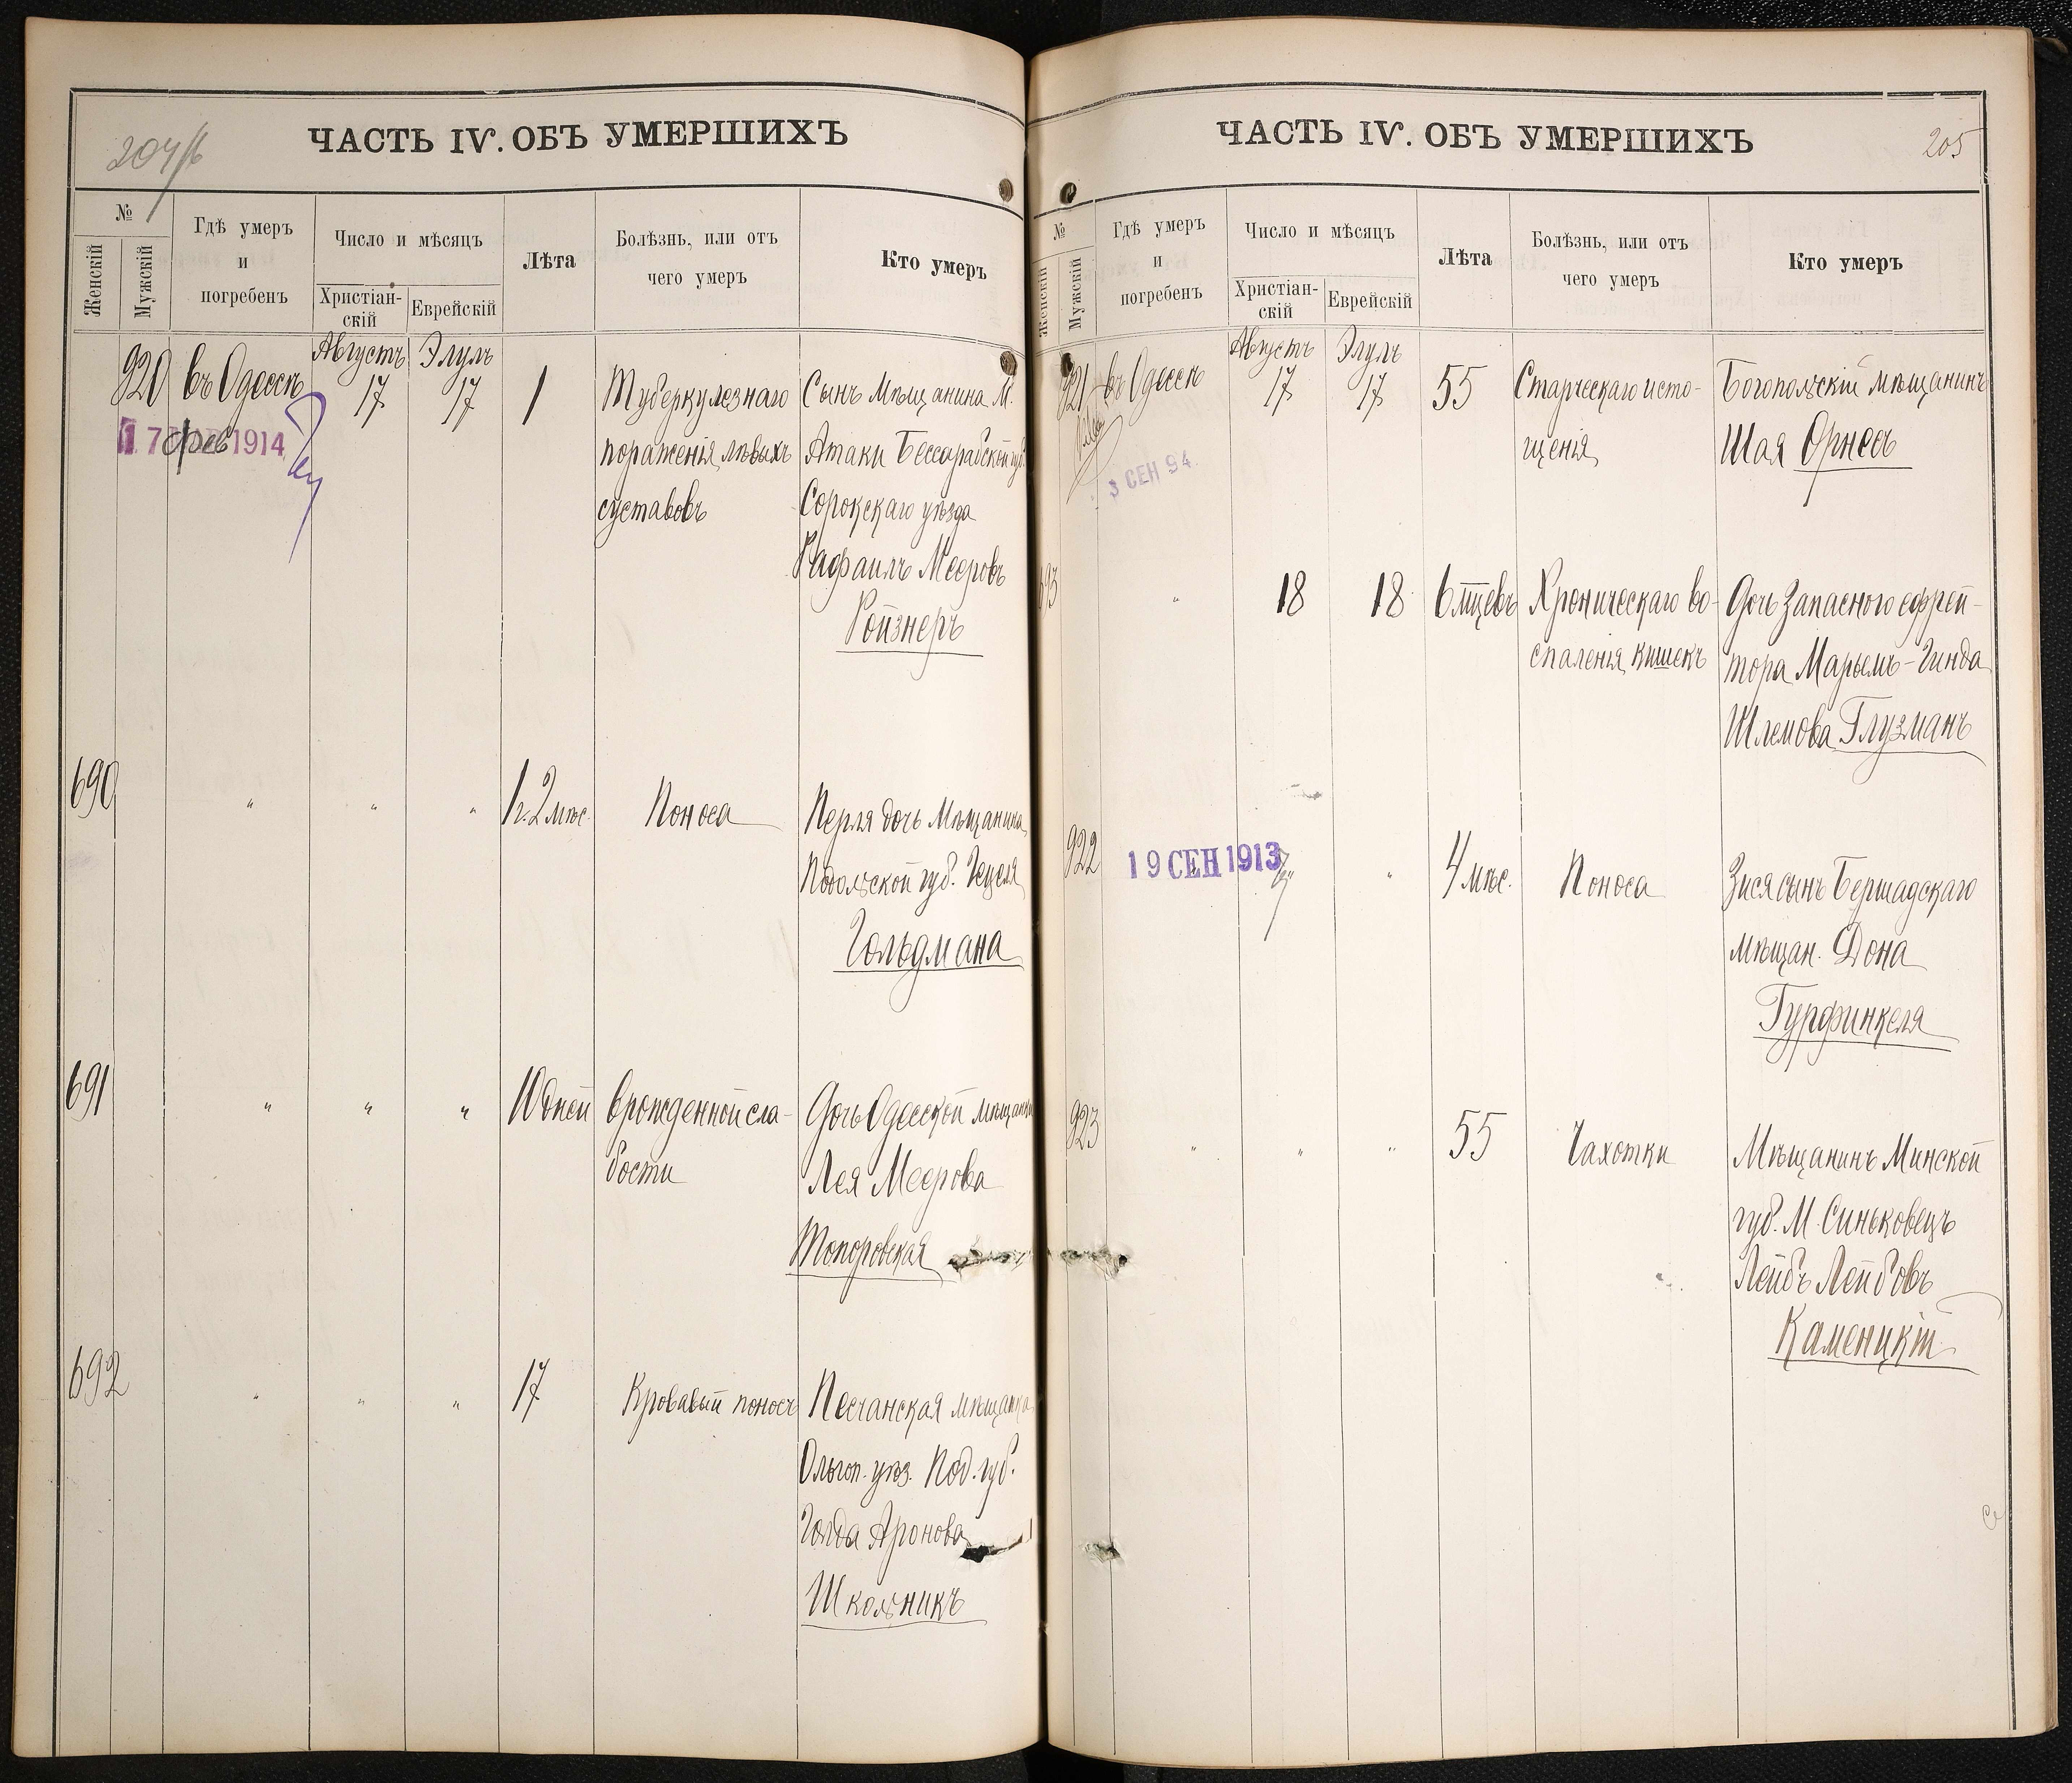 204/б
ЧАСТЬ IV. ОБЪ УМЕРШИХЪ
№
Женскій
Мужскій
Гдѣ умеръ
и
погребенъ
Число и мѣсяцъ
Христіан-
скій
Еврейскій
Лѣта
Болѣзнь, или отъ
чего умеръ
Кто умеръ
920 въ Одессѣ Августъ 17 Элулъ 17 1 Туберкулезнаго Сынъ Мѣщанина М.
17 фев 1914 пораженія, лѣвыхъ Атаки Бессарабской губ.
суставовъ Сорокскаго уѣзда
Рафаилъ Мееровъ
Ройзнеръ
690 " " " 1г. 2 мѣс. Поноса Перля дочь Мѣщанина
Подольской губ. Гецеля
Гольдмана
691 " " " 10 дней Врожденной сла- Дочь Одесской мѣщанки
бости Лея Меерова
Топоровская
692 " " " 17 Кровавый поносъ Песчанская мѣщанка
Ольгоп. уѣз. Под. губ.
Голда Аронова
Школьникъ
205
ЧАСТЬ IV. ОБЪ УМЕРШИХЪ
№
Женскій
Мужскій
Гдѣ умеръ
и
погребенъ
Число и мѣсяцъ
Христіан-
скій
Еврейскій
Лѣта
Болѣзнь, или отъ
чего умеръ
Кто умеръ
921 въ Одессѣ Августъ 17 Элулъ 17 55 Старческаго исто- Богопольскій мѣщанинъ
3 СЕН 94 щенія Шая Орнесъ
693 " 18 18 6 мцевъ Хроническаго во- Дочь Запаснаго ефрей-
спаленія кишекъ тора Марьемъ-Гинда
Шлемова Глузманъ
922 19 СЕН 1913 " " 4 мѣс. Поноса Зися сынъ Бершадскаго
мѣщан. Дона
Гурфинкеля
923 " " " 55 Чахотки Мѣщанинъ Минской
губ. М. Синьковецъ
Лейбъ Лейбовъ
Каменицкій